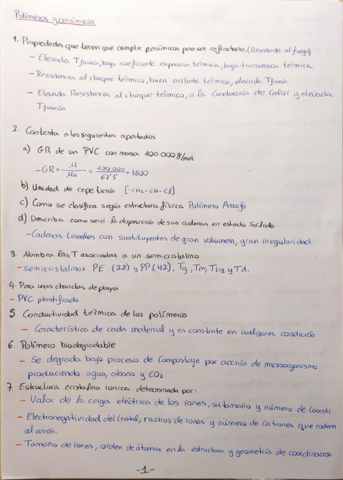 Polímeros y cerámicos
1. Propiedades que tienen que cumplir cerámicos para ser refractario. (Resistente al fuego)
- Elevada Tfusión, bajo coeficiente expansión térmica, baja transmisión térmica
- Resistencia al choque térmico, buen aislante térmico, elevada Tfusión
- Elevada Resistencia al choque térmico, a la conducción de calor y elevada
Tfusión
2. Contesta a los siguientes apartados
a) GR de un PVC con masa 100 000 g/mol.
- GR = M/Mo = 100.000/62'5 = 1600
b) Unidad de repetición [-CH2-CH-Cl]
c) Como se clasifica según estructura física Polímero Amorfo
d) Describa como será la disposición de sus cadenas en estado sólido
- Cadenas lineales con sustituyentes de gran volumen, gran irregularidad.
3. Nombra las T asociadas a un semicristalino
- semicristalinos PE (28) y PP (42), Tg, Tm, y Td.
4. Para unas chanclas de playa
- PVC plastificado
5 Conductividad térmica de los polímeros
- Característica de cada material y es constante en cualquier condición
6. Polímero biodegradable
- Se degrada bajo proceso de compostaje por acción de microorganismo
produciendo agua, abono y CO2
7. Estructura cristalina iónica determinada por:
- Valor de la carga eléctrica de los iones, su tamaño y número de coordi.
- Electronegatividad del cristal, radios de iones y número de cationes que rodean
al anión
- Tamaño de iones, orden de átomos en la estructura y geometría de coordinación
-1-